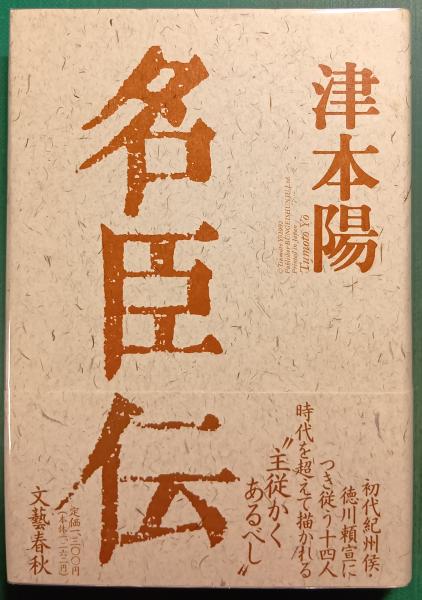 津本陽
Tumoto Yo
©Tumoto YO 1992
Publisher BUNGEISHUNJU Ltd.
Printed in Japan
名臣伝
初代紀州侯・
徳川頼宣に
つき従う十四人
時代を超えて描かれる
〝主従かく
あるべし〟
定価一三〇〇円
(本体一二六二円)
文藝春秋